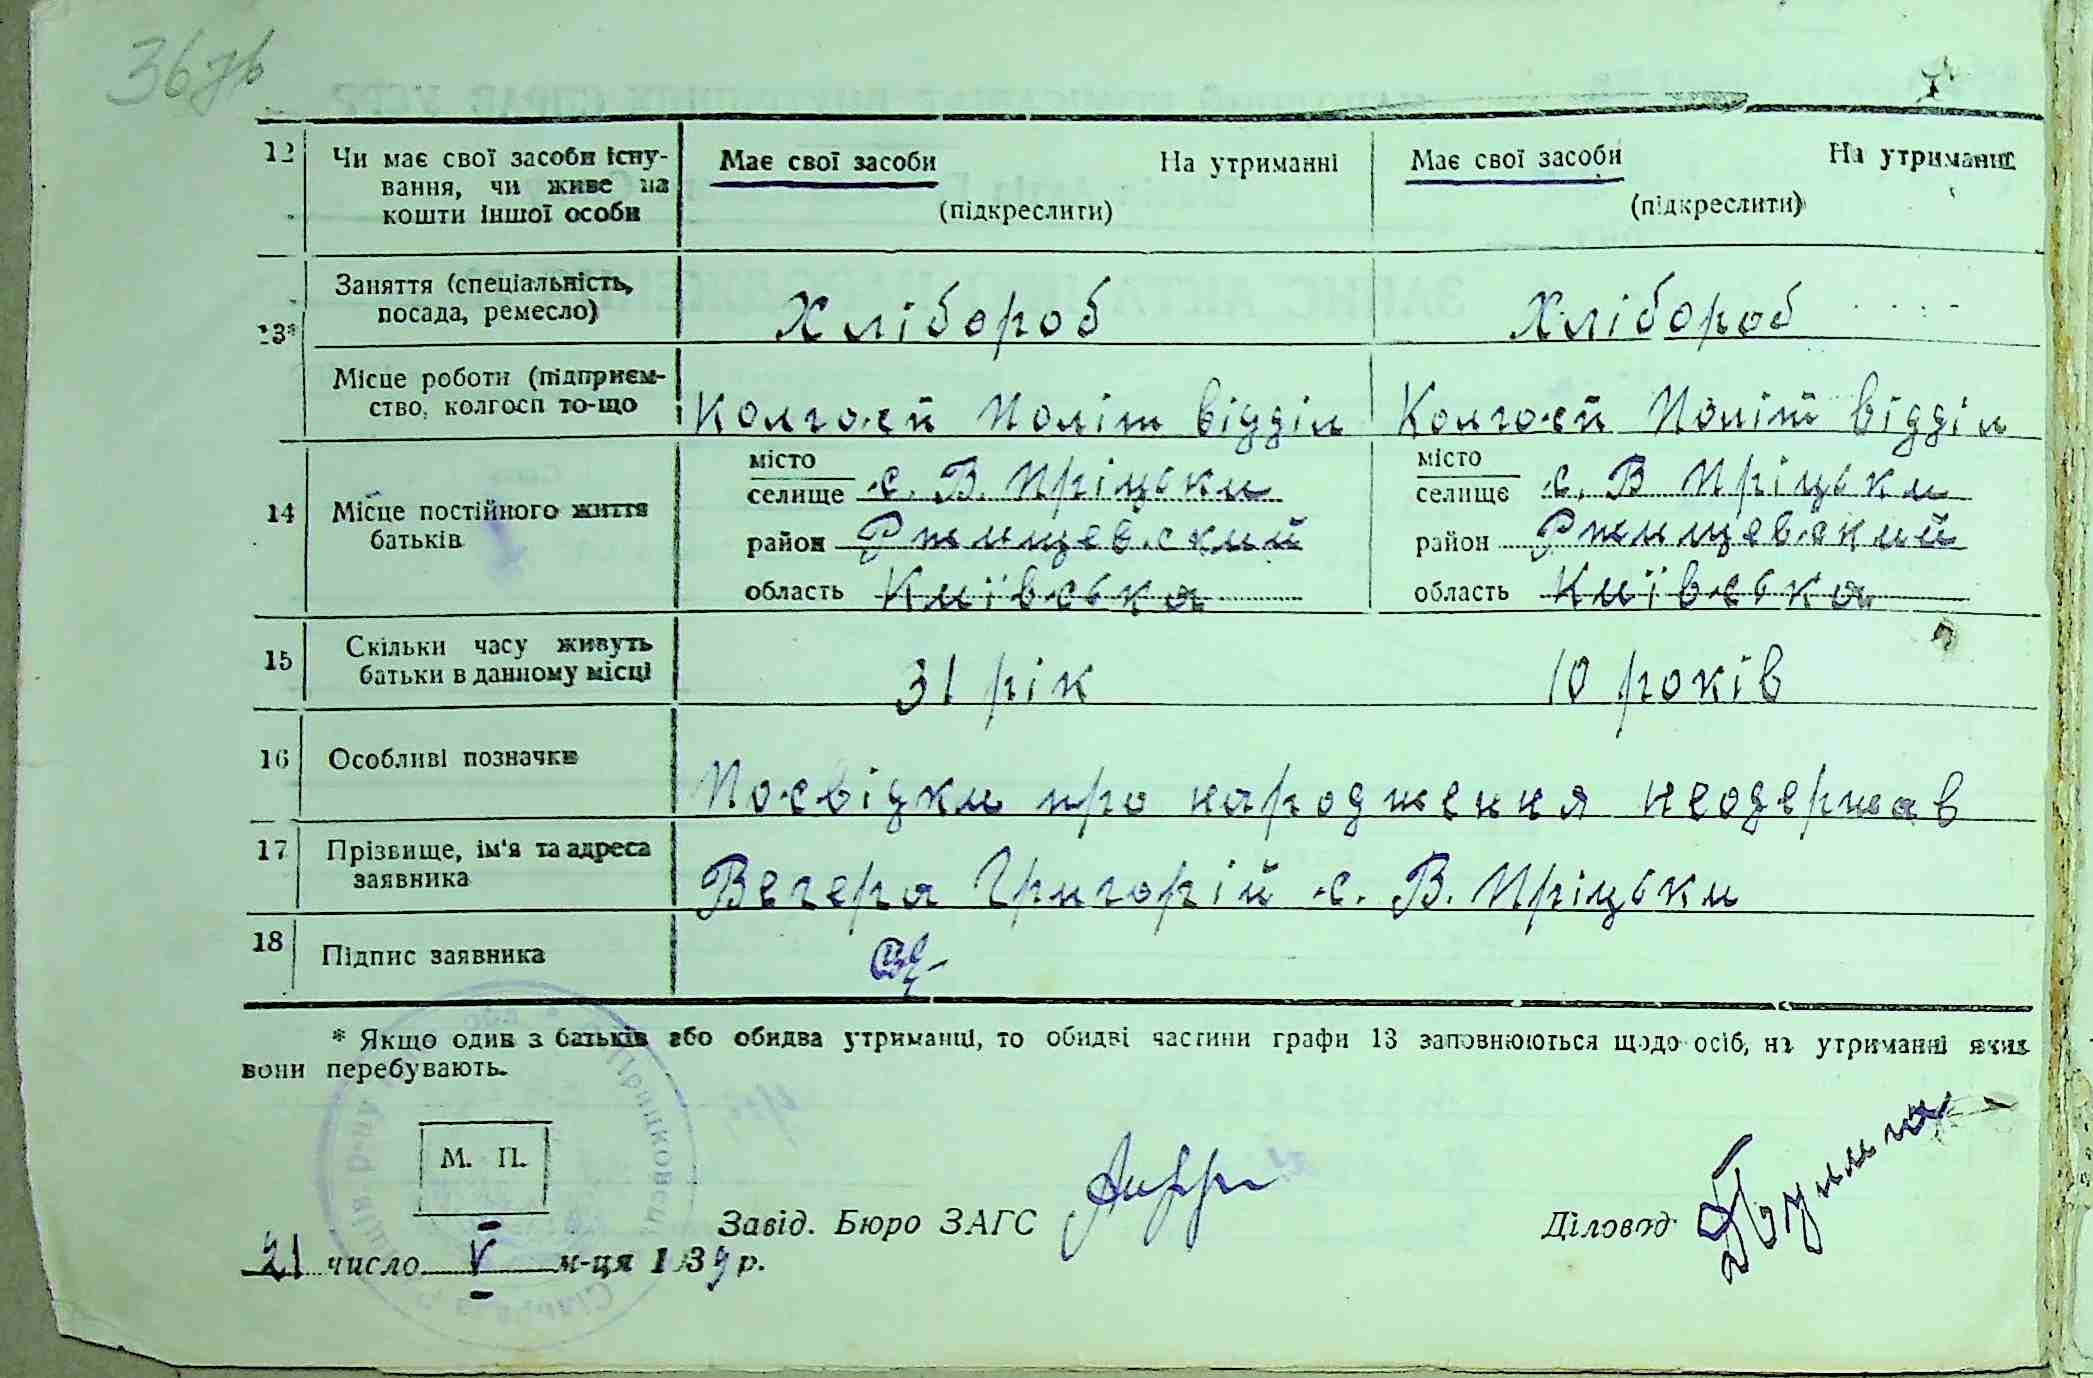 36 зв
12 Чи має свої засоби існу- Має свої засоби На утриманні Має свої засоби На утриманні
вання, чи живе на
кошти іншої особи (підкреслити) (підкреслити)
13* Заняття (спеціальність,
посада, ремесло) Хлібороб Хлібороб
Місце роботи (підприєм-
ство, колгосп то-що Колгосп Політ відділ Колгосп Політ відділ
місто місто
селище с. В. Пріцьки селище с. В Пріцьки
14 Місце постійного життя
батьків район Ржищевский район Ржищевский
область Київська область Київська
15 Скільки часу живуть
батьки в данному місці 31 рік 10 років
16 Особливі позначки Посвідки про народження неодержав
17 Прізвище, ім'я та адреса
заявника Вегера Григорій с. В. Пріцьки
18 Підпис заявника
* Якщо один з батьків або обидва утриманці, то обидві частини графи 13 заповнюються щодо осіб, на утриманні яких
вони перебувають.
М. П.
Завід. Бюро ЗАГС Діловод
21 число V м-ця 193 р.